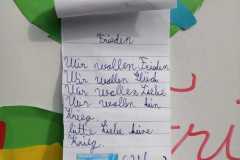 Frieden
Wir wollen Frieden
Wir wollen Glück
Wir wollen Liebe
Wir wollen kein
Krieg
bitte Liebe keine
Krieg.